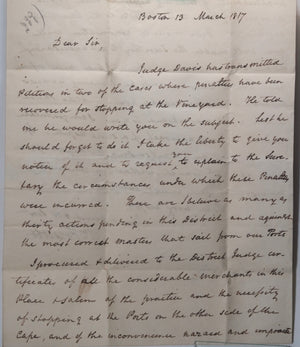 Boston 13 March 1817
Dear Sir,
Judge Davis has transmitted
Petitions in two of the Cases where penalties have been
recovered for stopping at the Vineyard. He told
me he would write you on the subject. Lest he
should forget to do it I take the liberty to give you
notice of it and to request you to explain to the Secre-
tary the circumstances under which these Penalties
were incurred. There are I believe as many as
thirty actions pending in this District and against
the most correct masters that sail from our Ports
I procured & delivered to the District Judge cer-
tificate of all the considerable merchants in this
Place & Salem of the practice and the necessity
of stopping at the Ports on the other side of the
Cape, and of the inconvenience hazard and